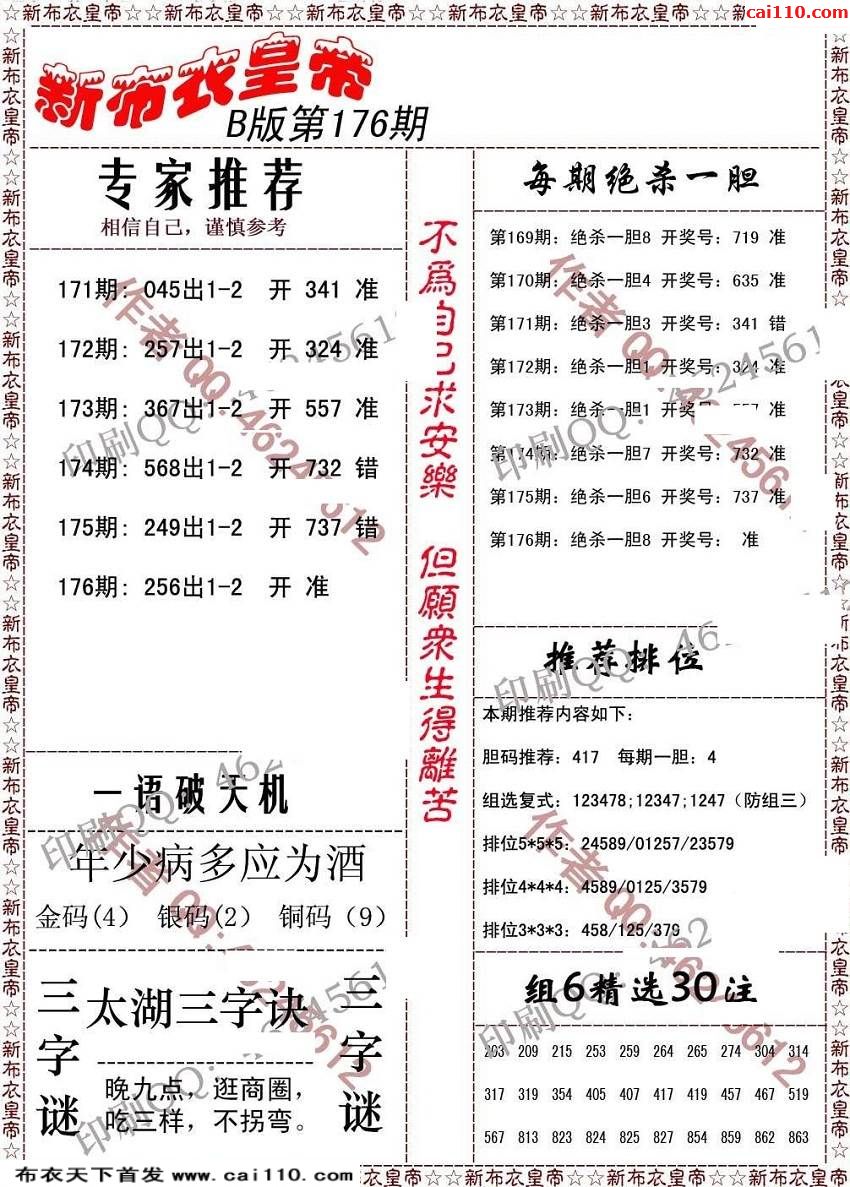 ☆☆新布衣皇帝☆☆新布衣皇帝☆☆新布衣皇帝☆☆新布衣皇帝☆☆新布衣皇帝☆☆新
cai110.com
新布衣皇帝
B版第176期
专家推荐
相信自己，谨慎参考
171期: 045出1-2 开 341 准
172期: 257出1-2 开 324 准
173期: 367出1-2 开 557 准
174期: 568出1-2 开 732 错
175期: 249出1-2 开 737 错
176期: 256出1-2 开 准
一语破天机
年少病多应为酒
金码(4) 银码(2) 铜码（9）
三字谜
太湖三字诀
晚九点，逛商圈，
吃三样，不拐弯。
三字谜
不爲自己求安樂 但願衆生得離苦
每期绝杀一胆
第169期: 绝杀一胆8 开奖号: 719 准
第170期: 绝杀一胆4 开奖号: 635 准
第171期: 绝杀一胆3 开奖号: 341 错
第172期: 绝杀一胆1 开奖号: 324 准
第173期: 绝杀一胆1 开奖号: 557 准
第174期: 绝杀一胆7 开奖号: 732 准
第175期: 绝杀一胆6 开奖号: 737 准
第176期: 绝杀一胆8 开奖号: 准
推荐排位
本期推荐内容如下:
胆码推荐: 417 每期一胆: 4
组选复式: 123478;12347;1247（防组三）
排位5*5*5: 24589/01257/23579
排位4*4*4: 4589/0125/3579
排位3*3*3: 458/125/379
组6精选30注
203 209 215 253 259 264 265 274 304 314
317 319 354 405 407 417 419 457 467 519
567 813 823 824 825 827 854 859 862 863
作者QQ:462424561612
印刷QQ:4624561612
布衣天下首发 www.cai110.com
衣皇帝☆☆新布衣皇帝☆☆新布衣皇帝☆☆新布衣皇帝☆☆